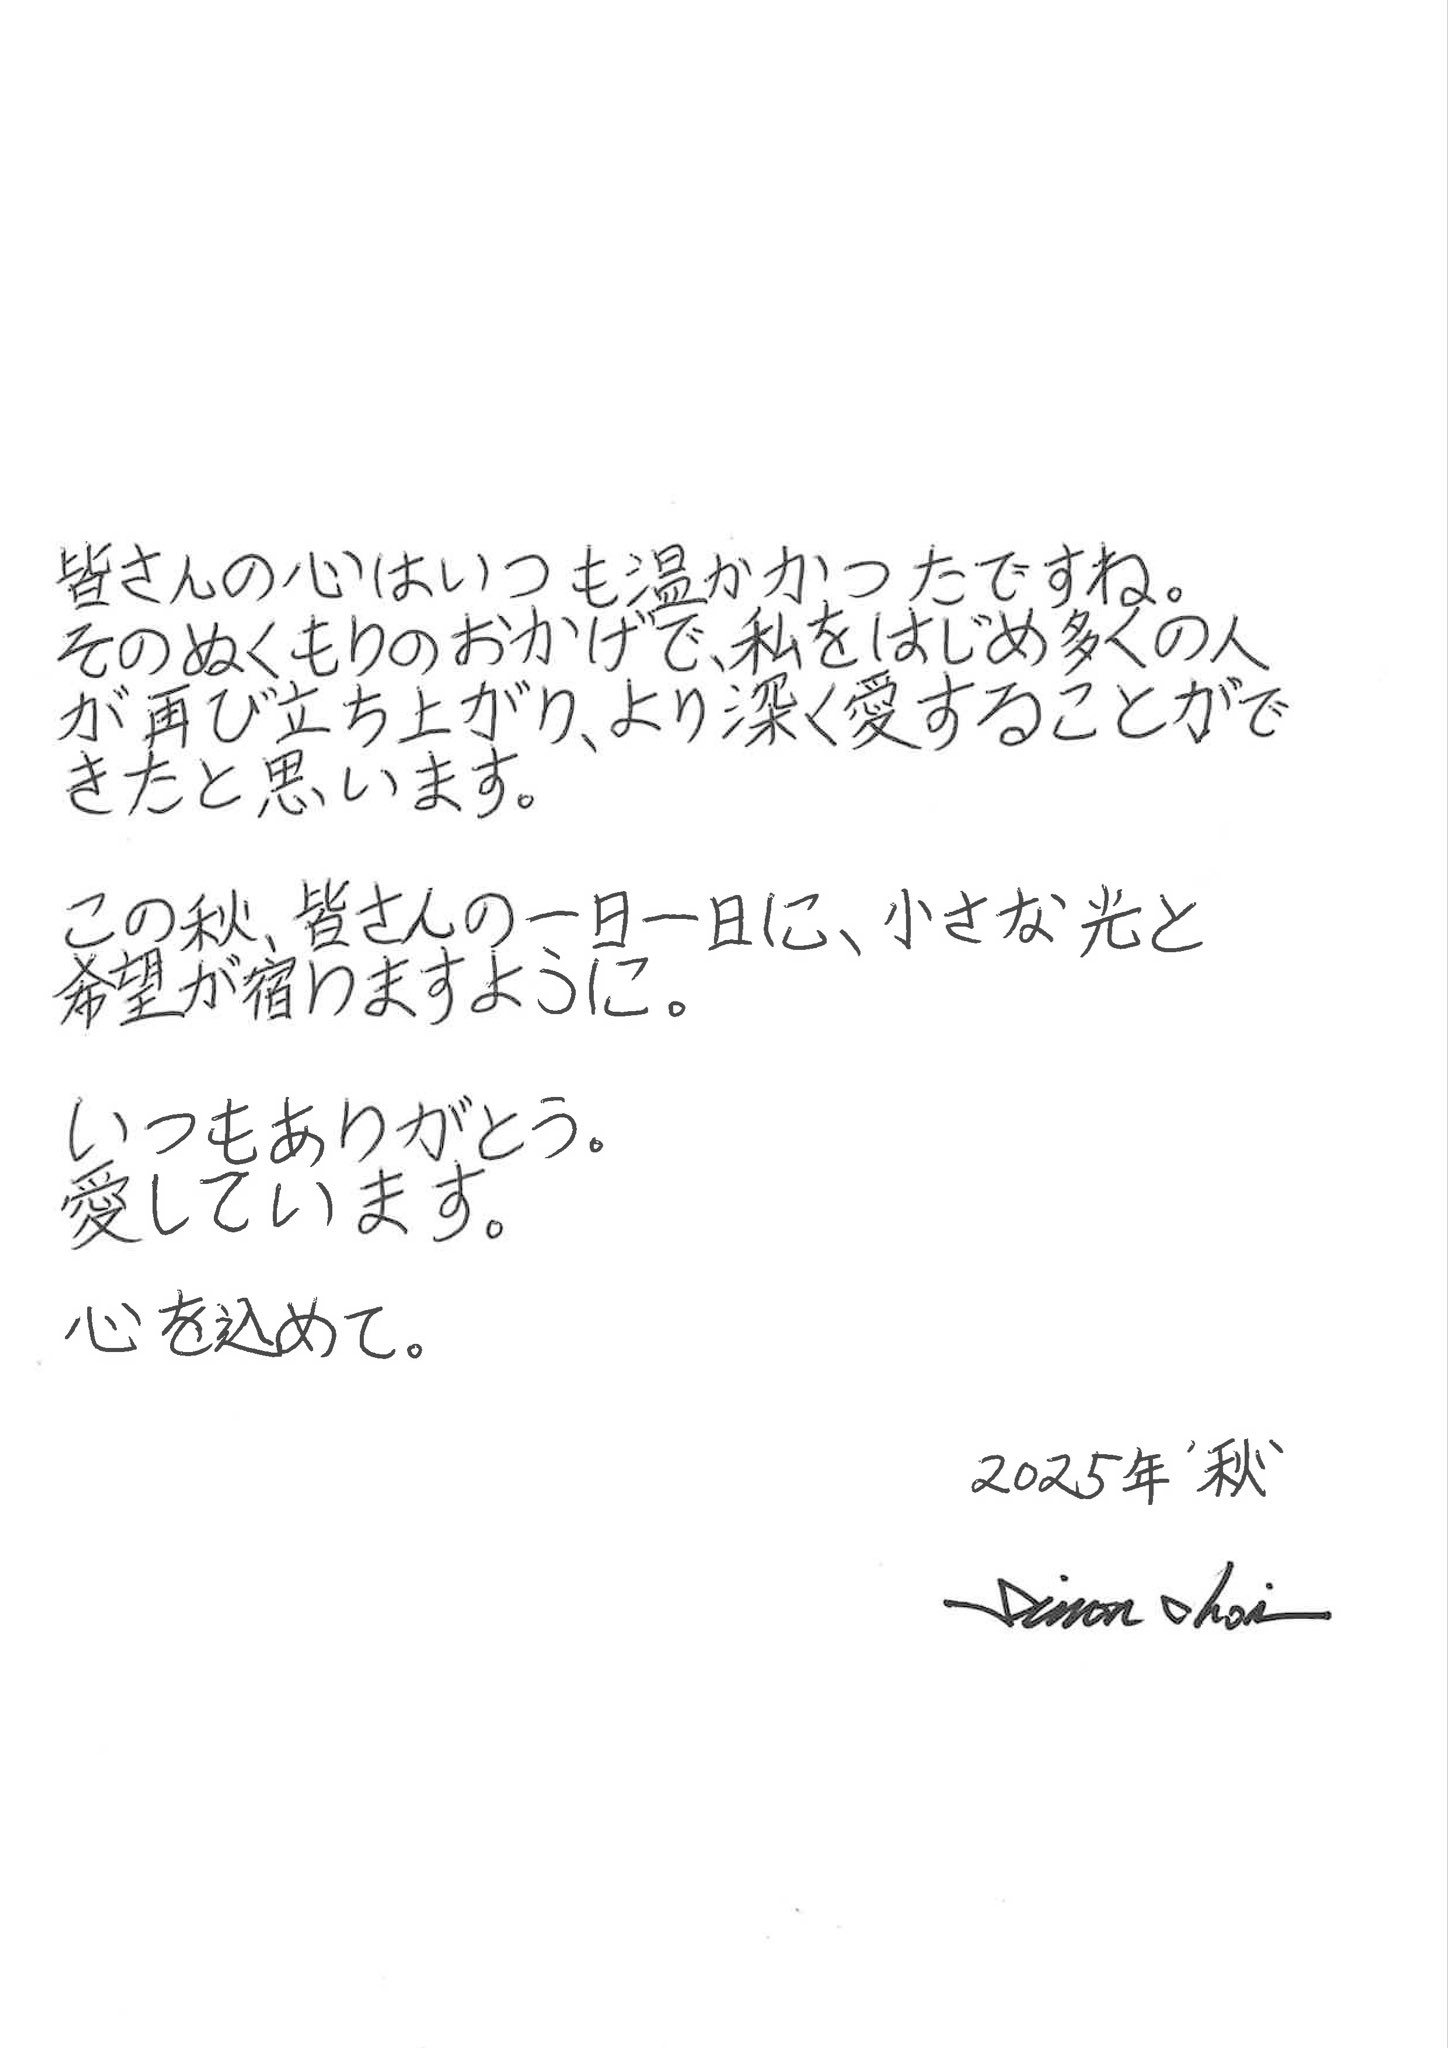 皆さんの心はいつも温かかったですね。
そのぬくもりのおかげで、私をはじめ多くの人
が再び立ち上がり、より深く愛することがで
きたと思います。
この秋、皆さんの一日一日に、小さな光と
希望が宿りますように。
いつもありがとう。
愛しています。
心を込めて。
2025年 '秋'
Simon Choi